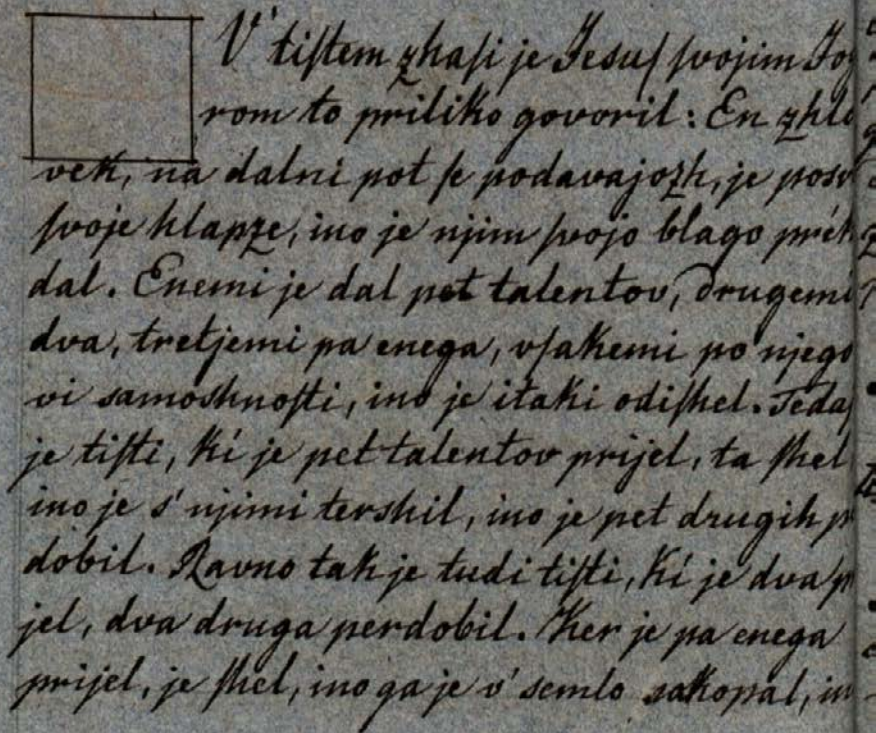 V' tiſtem zhaſi je Jesuſ ſvojim Jog
rom to priliko govoril: En zhlo
vek, na dalni pot ſe podavajozh, je posv
ſvoje hlapze, ino je njim ſvojo blago prék
dal. Enemi je dal pet talentov, drugemi
dva, tretjemi pa enega, vſakemi po njego
vi samoshnoſti, ino je itaki odiſhel. Tedaſ
je tiſti, ki je pet talentov prijel, ta ſhel
ino je s' njimi tershil, ino je pet drugih p
dobil. Ravno tak je tudi tiſti, ki je dva p
jel, dva druga perdobil. Ker je pa enega
prijel, je ſhel, ino ga je v' semlo sakopal, in